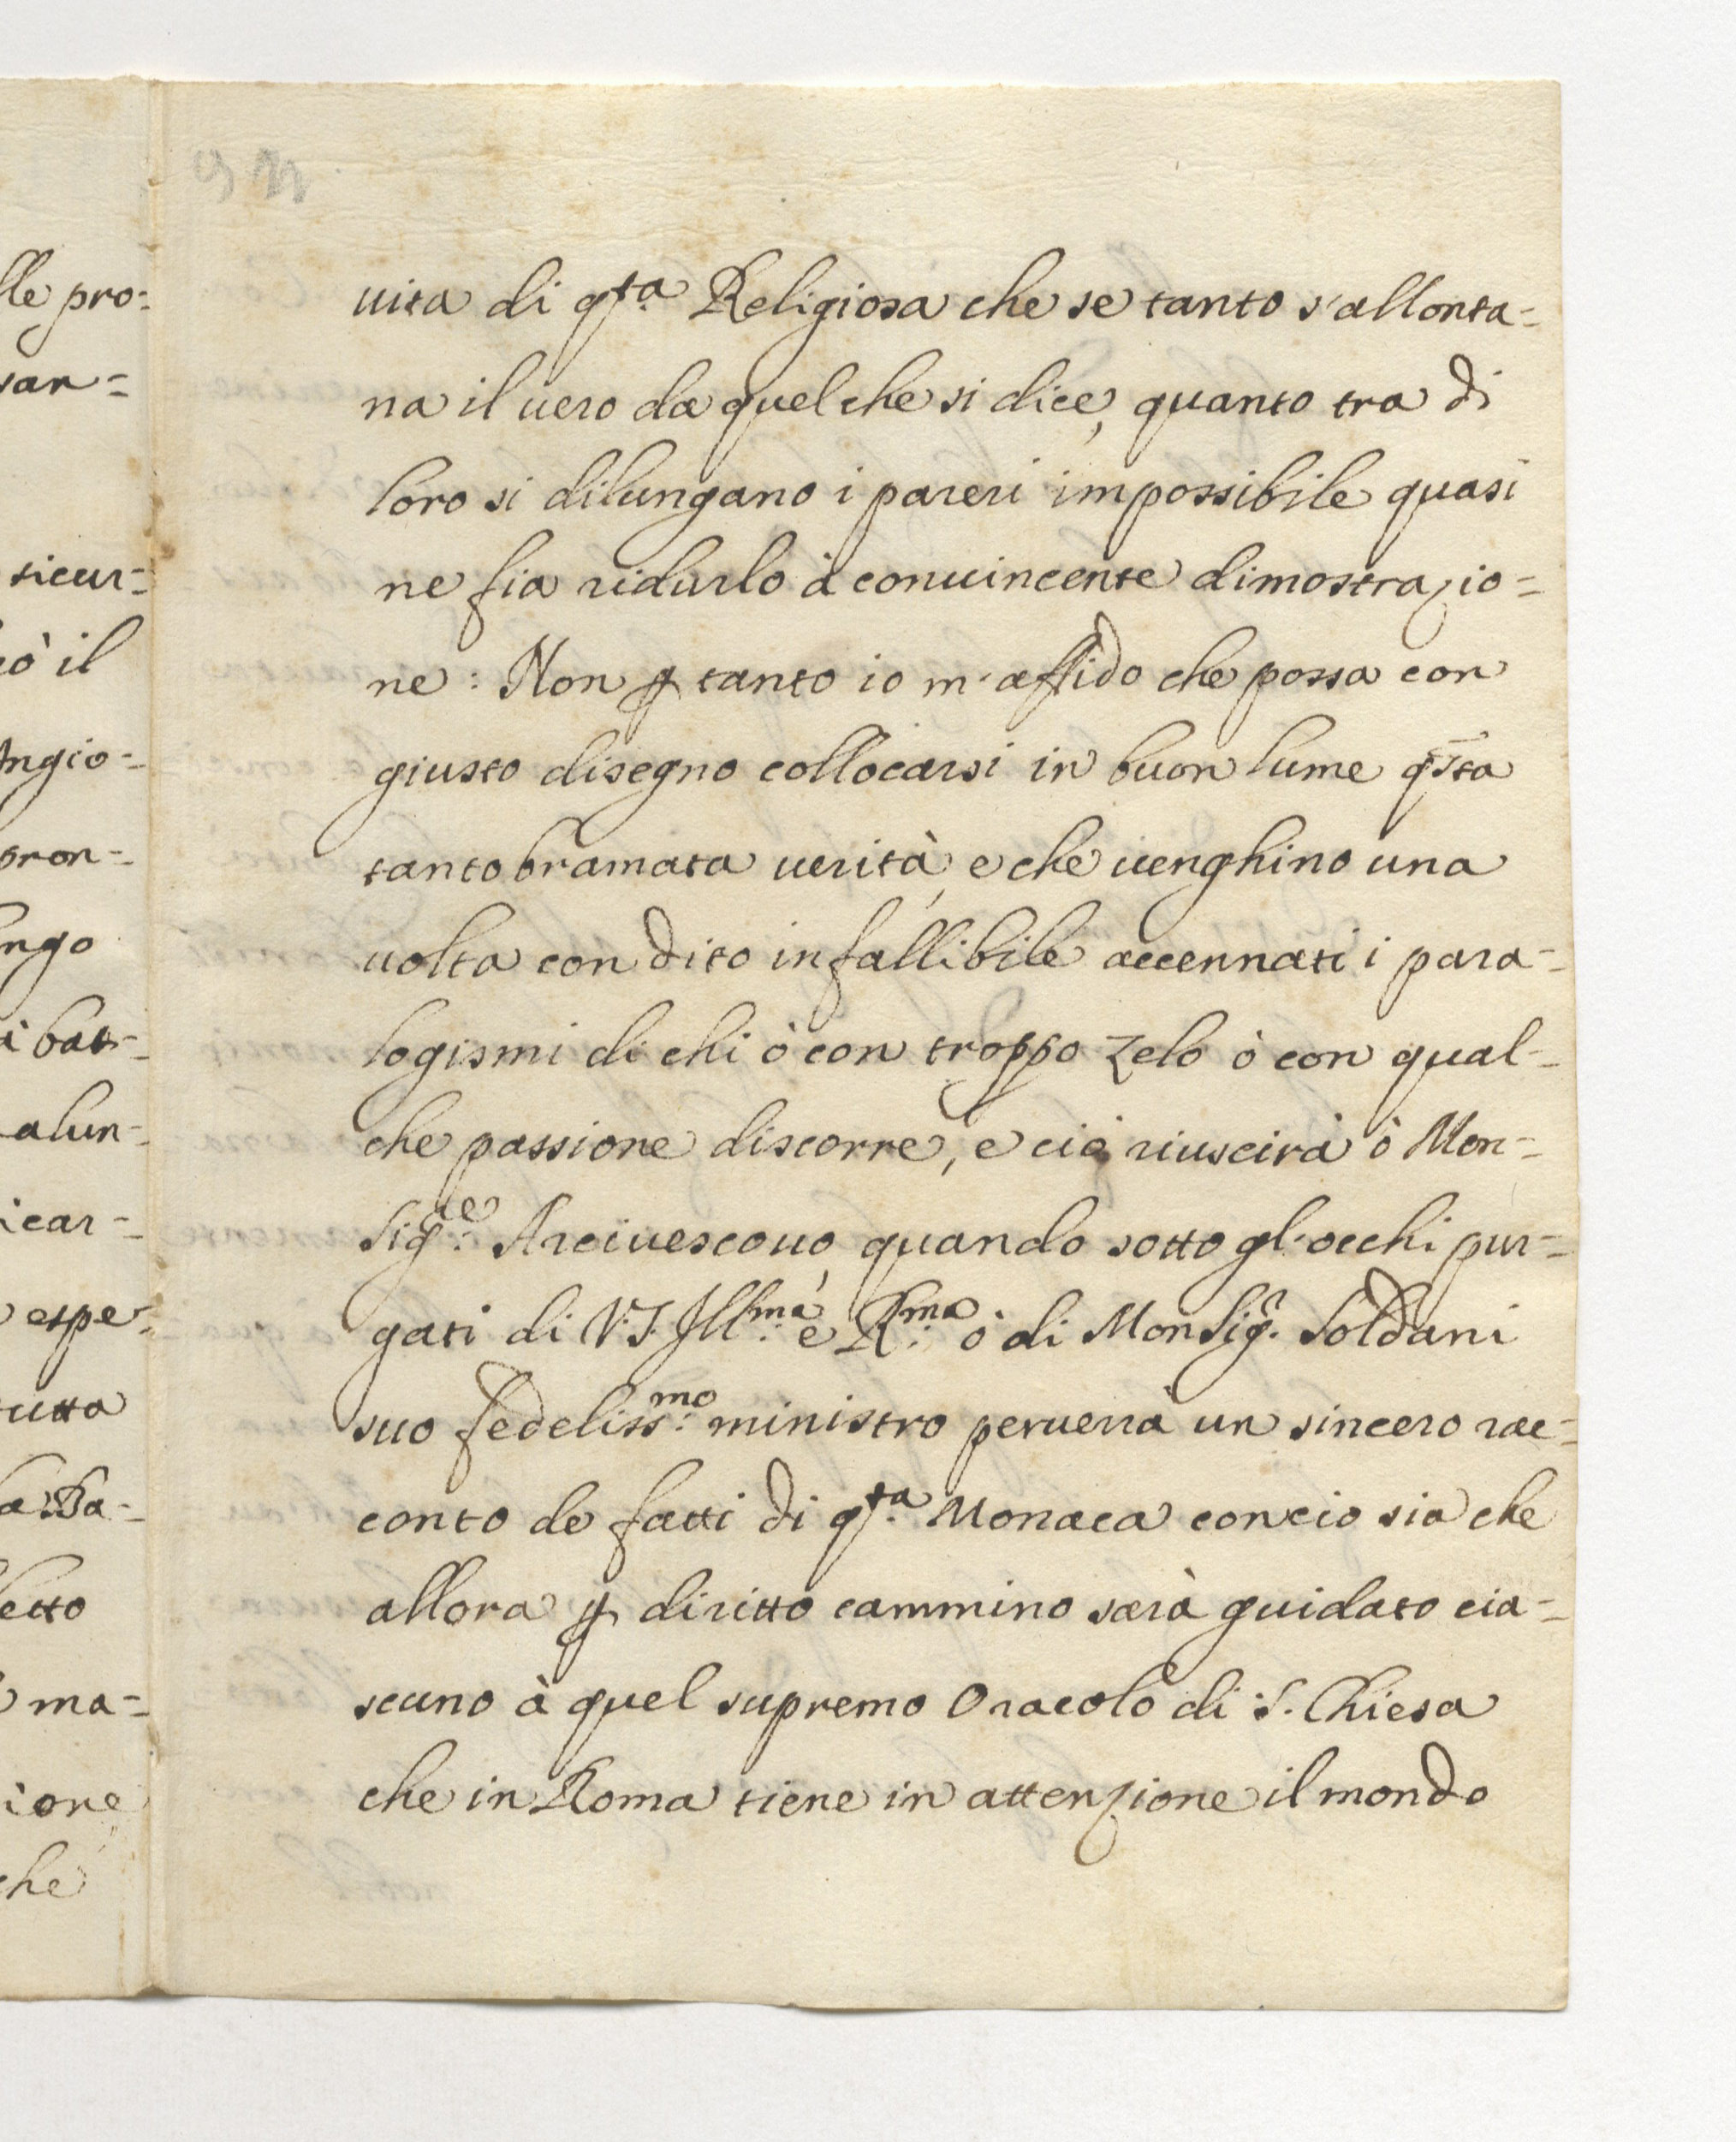 lle pro=
san=
sicur=
ò il
Angio=
pron=
ngo
à bat=
alun=
icar=
espe=
tutta
la Ba=
letto
ma=
ione
che
uita di qsta Religiosa che se tanto s'allonta=
na il uero da quel che si dice, quanto tra di
loro si dilungano i pareri impossibile quasi
ne fia ridurlo à conuincente dimostrazio=
ne: Non p tanto io m'affido che possa con
giusto disegno collocarsi in buon lume qsta
tanto bramata uerità, e che uenghino una
uolta con dito infallibile accennati i para=
logismi di chi ò con troppo zelo ò con qual=
che passione discorre, e ciò riuscirà ò Mon=
Sigre. Arciuescouo, quando sotto gl'occhi pur=
gati di V.S. Illma: e Rma: ò di MonSigr. Soldani
suo fedelissmo: ministro peruerrà un sincero rac=
conto de fatti di qsta Monaca concio sia che
allora p diritto cammino sarà guidato cia=
scuno à quel supremo Oracolo di S. Chiesa
che in Roma tiene in attenzione il mondo